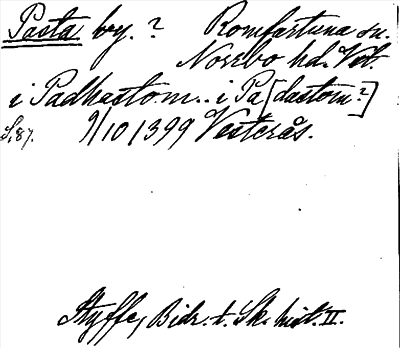 Pasta by. ? Romfartuna sn.
Norrbo hd. Vstl.
i Padhastom.. i Pa [dastom?]
S. 87. 9/10 1399 Vesterås.
Styffe, Bidr. t. Sk. hist. II.